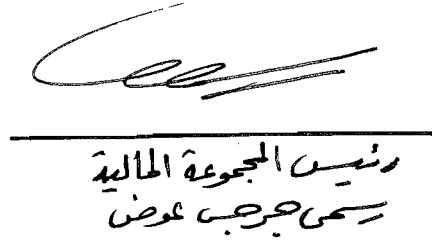 رئيس المجموعة المالية
رسمي جرجس عوض